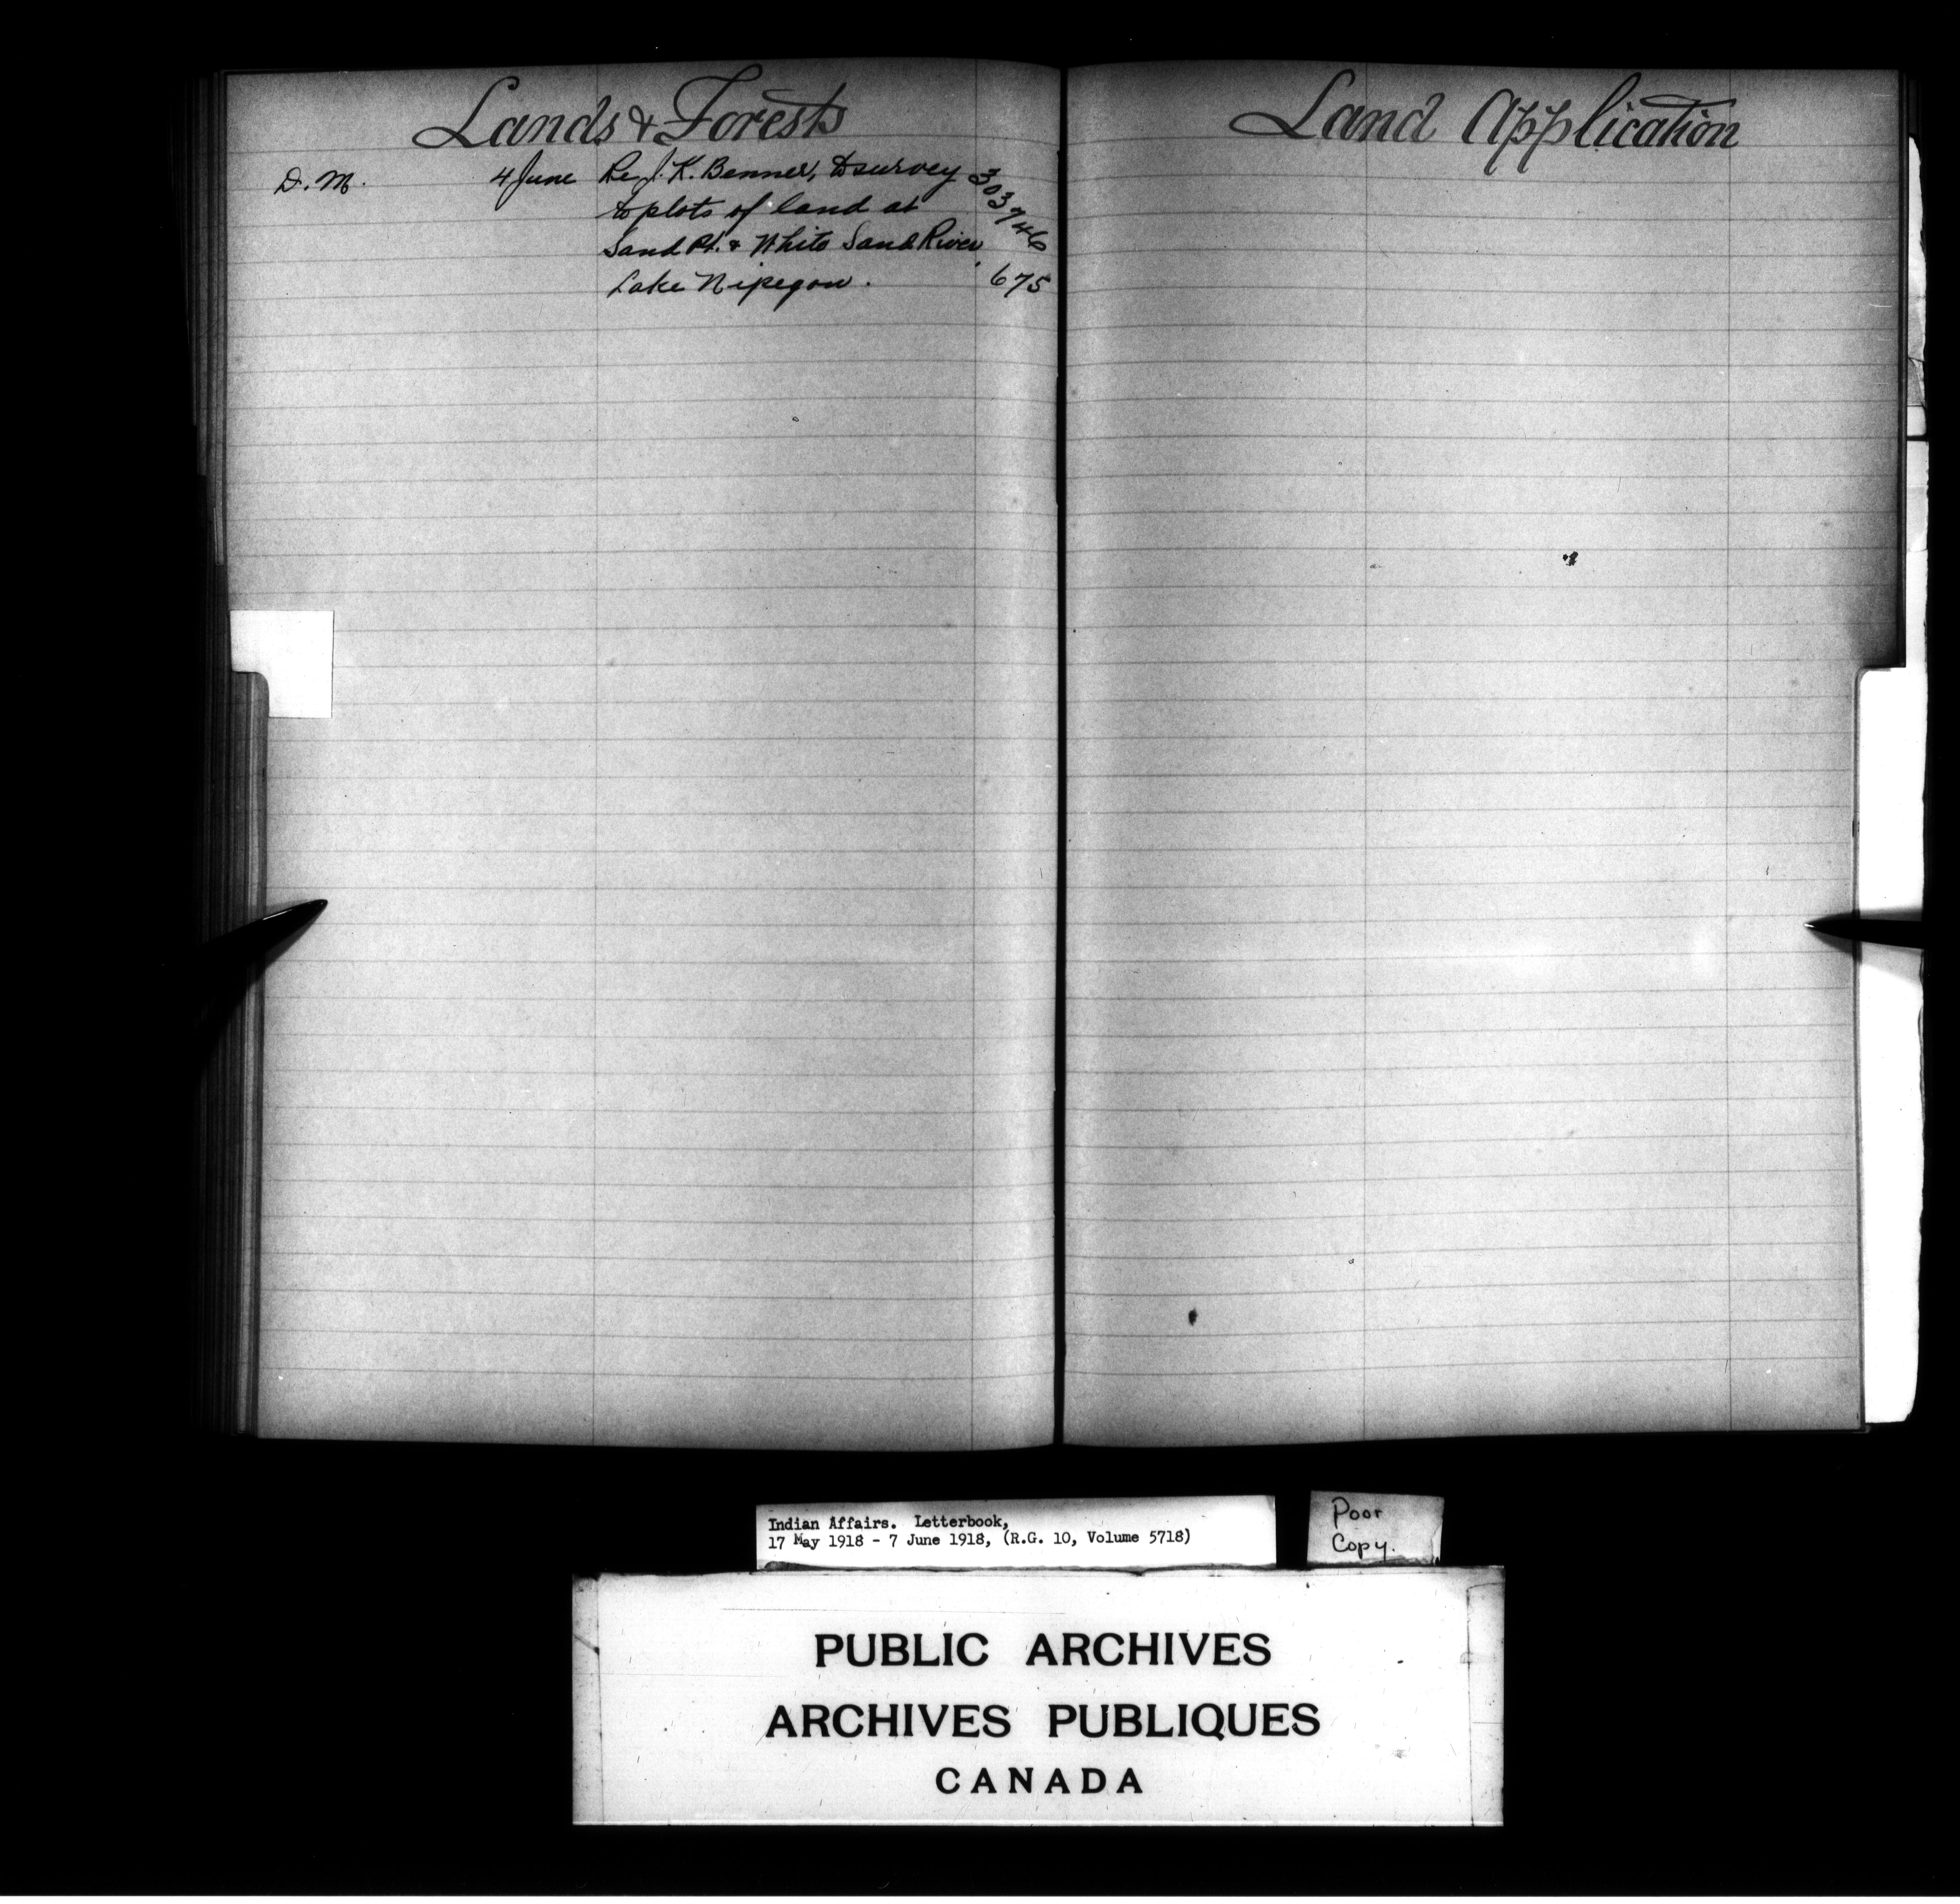 Lands & Forests
D. M. 4 June Re J. K. Benner, to survey 303746
to plots of land at
Sand Pt. & White Sand River,
Lake Nipegon. 675
Land Application
Indian Affairs. Letterbook,
17 May 1918 - 7 June 1918, (R.G. 10, Volume 5718)
Poor
Copy.
PUBLIC ARCHIVES
ARCHIVES PUBLIQUES
CANADA